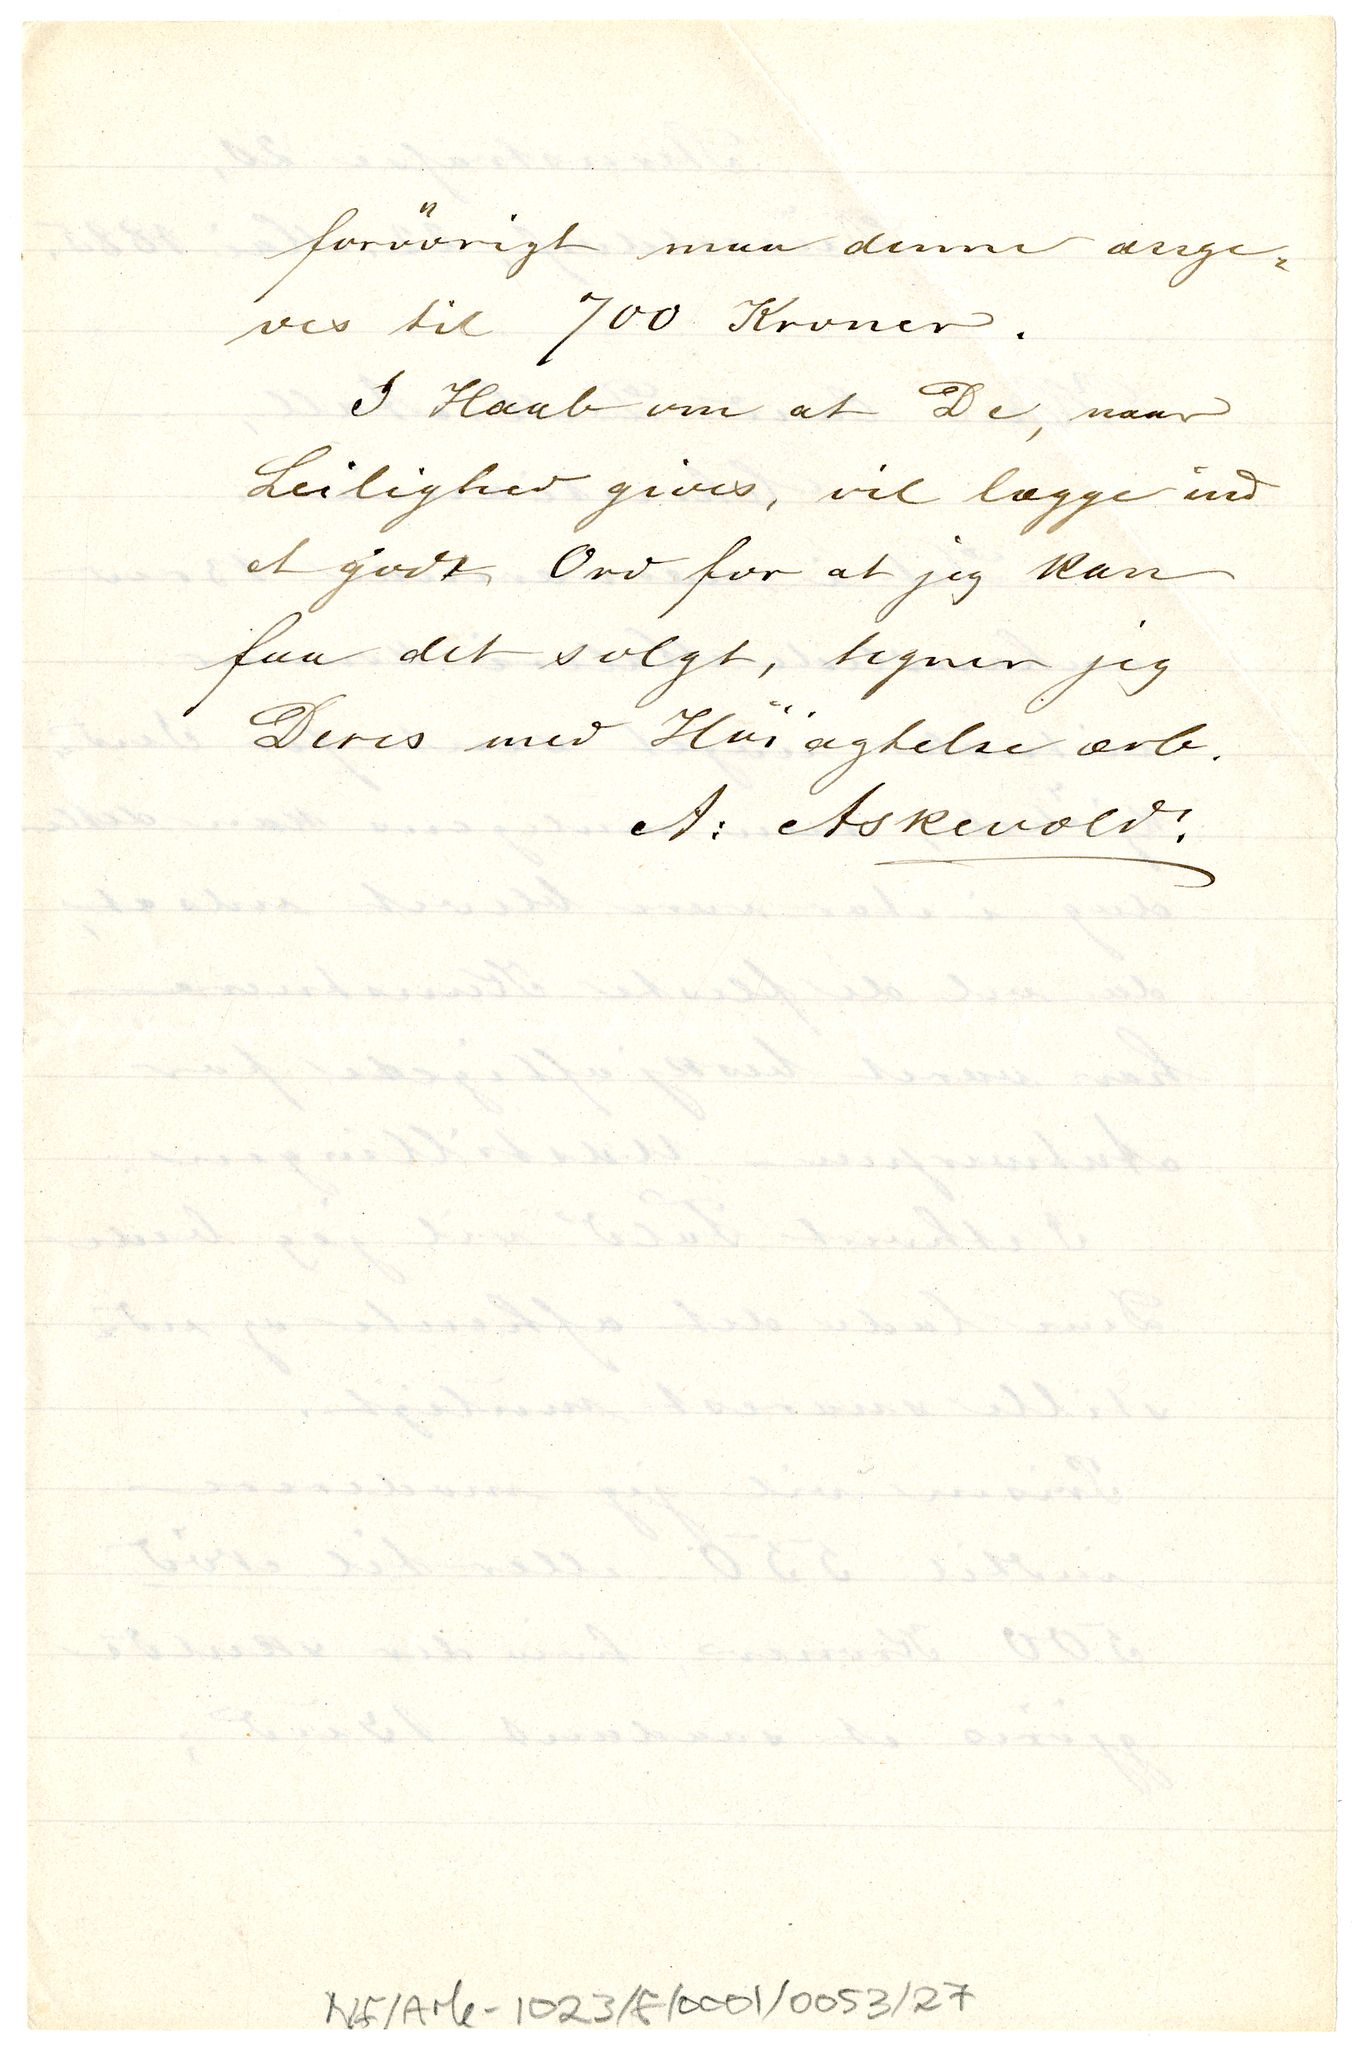 forövrigt maa denne ange=
ves til 700 Kroner.
I Haab om at De, naar
Leilighed gives, vil lægge ind
et godt Ord for at jeg kan
faa det solgt, tegner jeg
Deres med Höiagtelse ærb.
A: Askevold.
NF/Ark-1023/F/0001/0053/27